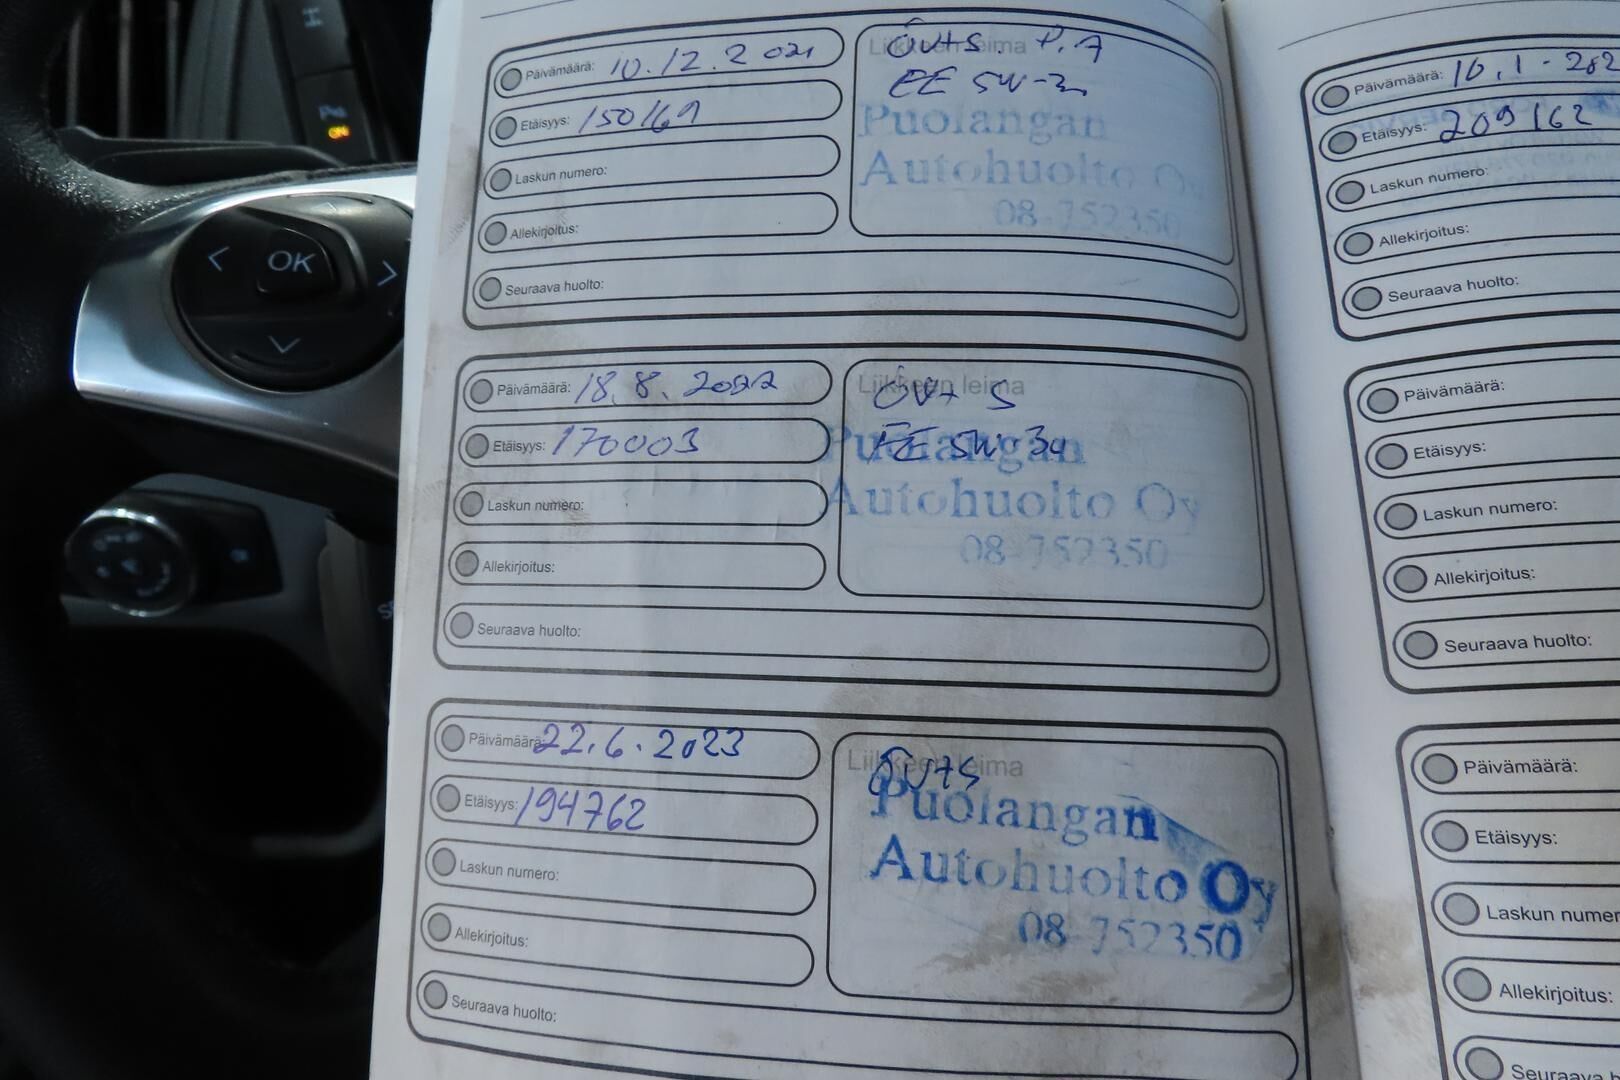 OK
Päivämäärä: 10.12.2021
Etäisyys: 150169
Laskun numero:
Allekirjoitus:
Seuraava huolto:
Liikkeen leima
ÖV+S. P.A
EE 5W-30
Puolangan
Autohuolto Oy
08-752350
Päivämäärä: 18.8.2022
Etäisyys: 170003
Laskun numero:
Allekirjoitus:
Seuraava huolto:
Liikkeen leima
ÖV+S
FE 5W 30
Puolangan
Autohuolto Oy
08-752350
Päivämäärä: 22.6.2023
Etäisyys: 194762
Laskun numero:
Allekirjoitus:
Seuraava huolto:
Liikkeen leima
ÖV+S
Puolangan
Autohuolto Oy
08-752350
Päivämäärä: 10.1-202
Etäisyys: 209162
Laskun numero:
Allekirjoitus:
Seuraava huolto:
Päivämäärä:
Etäisyys:
Laskun numero:
Allekirjoitus:
Seuraava huolto:
Päivämäärä:
Etäisyys:
Laskun numer
Allekirjoitus:
Seuraava h